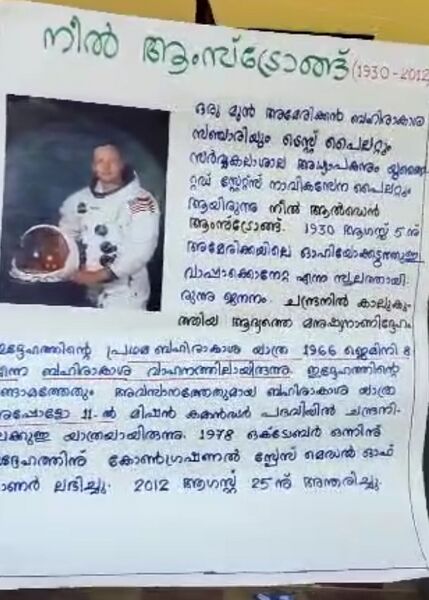 നീൽ ആംസ്ട്രോങ്ങ് (1930-2012)
ഒരു മുൻ അമേരിക്കൻ ബഹിരാകാശ
സഞ്ചാരിയും ടെസ്റ്റ് പൈലറ്റും
സർവ്വകലാശാല അദ്ധ്യാപകനും യുണൈ
റ്റഡ് സ്റ്റേറ്റ്സ് നാവികസേന പൈലറ്റും
ആയിരുന്നു നീൽ ആൽഡെൻ
ആംസ്ട്രോങ്ങ്. 1930 ആഗസ്റ്റ് 5 ന്
അമേരിക്കയിലെ ഓഹിയോക്കടുത്തുള്ള
വാപ്പാക്കൊനേറ്റ എന്ന സ്ഥലത്തായി
രുന്നു ജനനം. ചന്ദ്രനിൽ കാലുകു
ത്തിയ ആദ്യത്തെ മനുഷ്യനാണിദ്ദേഹം
ദ്ദേഹത്തിന്റെ പ്രഥമ ബഹിരാകാശ യാത്ര 1966 ജെമിനി 8
എന്ന ബഹിരാകാശ വാഹനത്തിലായിരുന്നു. ഇദ്ദേഹത്തിന്റെ
ണ്ടാമത്തെതും അവസാനത്തെതുമായ ബഹിരാകാശ യാത്ര
പ്പോളോ 11-ൽ മിഷൻ കമാൻഡർ പദവിയിൽ ചന്ദ്രനി-
ലേക്കുള്ള യാത്രയായിരുന്നു. 1978 ഒക്ടോബർ ഒന്നിന്
ദ്ദേഹത്തിന് കോൺഗ്രഷണൽ സ്പേസ് മെഡൽ ഓഫ്
ഓണർ ലഭിച്ചു. 2012 ആഗസ്റ്റ് 25 ന് അന്തരിച്ചു.